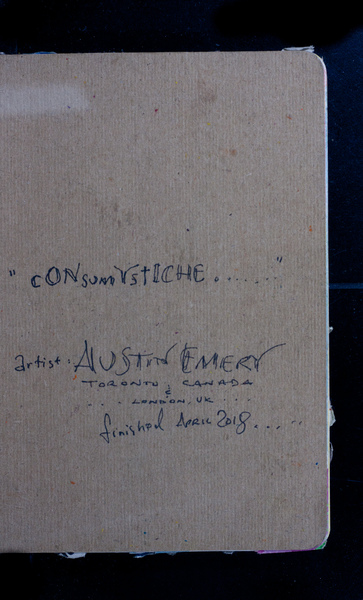 "CONSUMYSTICHE......."
artist: AUSTIN EMERY
TORONTO, CANADA
&
....LONDON, UK...
finished APRIL 2018.....